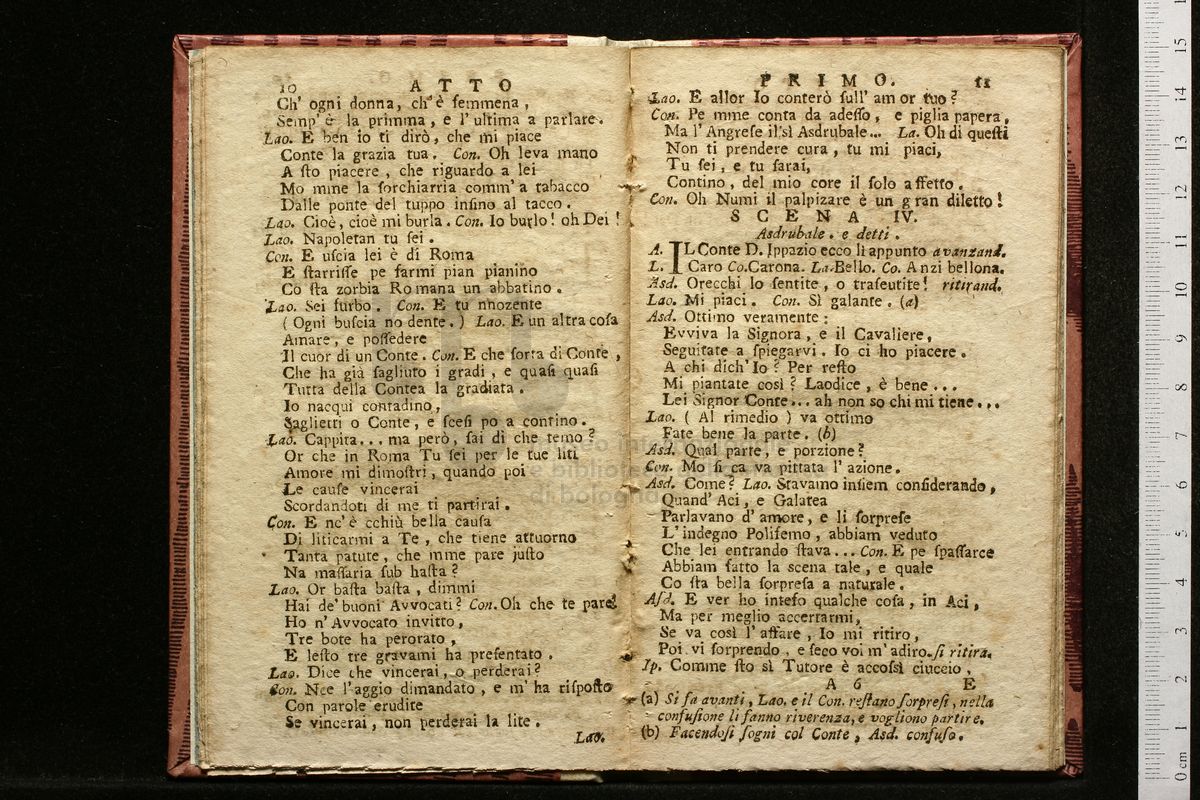 10 ATTO
Ch' ogni donna, ch' è femmena,
Semp' è la primma, e l' ultima a parlare.
Lao. E ben io ti dirò, che mi piace
Conte la grazia tua. Con. Oh leva mano
A ſto piacere, che riguardo a lei
Mo mme la ſorchiarria comm' a tabacco
Dalle ponte del tuppo inſino al tacco.
Lao. Cioè, cioè mi burla. Con. Io burlo! oh Dei!
Lao. Napoletan tu ſei.
Con. E uſcia lei è di Roma
E ſtarriſſe pe farmi pian pianino
Co ſta zorbia Romana un abbatino.
Lao. Sei furbo. Con. E tu nnozente
(Ogni buſcia no dente.) Lao. E un altra coſa
Amare, e poſſedere
Il cuor di un Conte. Con. E che ſorta di Conte,
Che ha già ſagliuto i gradi, e quaſi quaſi
Tutta della Contea la gradiata.
Io nacqui contadino,
Saglietti o Conte, e ſceſi po a contino.
Lao. Cappita... ma però, ſai di che temo?
Or che in Roma Tu ſei per le tue liti
Amore mi dimoſtri, quando poi
Le cauſe vincerai
Scordandoti di me ti partirai.
Con. E nc' è cchiù bella cauſa
Di liticarmi a Te, che tiene attuorno
Tanta patute, che mme pare juſto
Na maſſaria ſub haſta?
Lao. Or baſta baſta, dimmi
Hai de' buoni Avvocati? Con. Oh che te pare!
Ho n' Avvocato invitto,
Tre bote ha perorato,
E leſto tre gravami ha preſentato.
Lao. Dice che vincerai, o perderai?
Con. Nce l'aggio dimandato, e m' ha riſpoſto
Con parole erudite
Se vincerai, non perderai la lite.
Lao.
PRIMO. 11
Lao. E allor Io conterò ſull' amor tuo?
Con. Pe mme conta da adeſſo, e piglia papera,
Ma l' Angreſe il sì Asdrubale... La. Oh di queſti
Non ti prendere cura, tu mi piaci,
Tu ſei, e tu ſarai,
Contino, del mio core il ſolo affetto.
Con. Oh Numi il palpizare è un gran diletto!
SCENA IV.
Asdrubale. e detti.
A. IL Conte D. Ippazio ecco lì appunto avanzand.
L. Caro Co. Carona. La. Bello. Co. Anzi bellona.
Asd. Orecchi lo ſentite, o traſeutite! ritirand.
Lao. Mi piaci. Con. Sì galante. (a)
Asd. Ottimo veramente:
Evviva la Signora, e il Cavaliere,
Seguitate a ſpiegarvi. Io ci ho piacere.
A chi dich' Io? Per reſto
Mi piantate così? Laodice, è bene...
Lei Signor Conte... ah non so chi mi tiene...
Lao. (Al rimedio) va ottimo
Fate bene la parte. (b)
Asd. Qual parte, e porzione?
Con. Mo ſi ca va pittata l' azione.
Asd. Come? Lao. Stavamo inſiem conſiderando,
Quand' Aci, e Galatea
Parlavano d' amore, e li ſorpreſe
L' indegno Polifemo, abbiam veduto
Che lei entrando ſtava... Con. E pe ſpaſſarce
Abbiam fatto la scena tale, e quale
Co ſta bella ſorpreſa a naturale.
Aſd. E ver ho inteſo qualche coſa, in Aci,
Ma per meglio accertarmi,
Se va così l' affare, Io mi ritiro,
Poi vi ſorprendo, e ſeco voi m' adiro. ſi ritira.
Ip. Comme ſto sì Tutore è accoſsì ciuccio,
A 6 E
(a) Si fa avanti, Lao. e il Con. reſtano ſorpreſi, nella
confuſione li fanno riverenza, e vogliono partire.
(b) Facendoſi ſogni col Conte, Asd. confuſo.